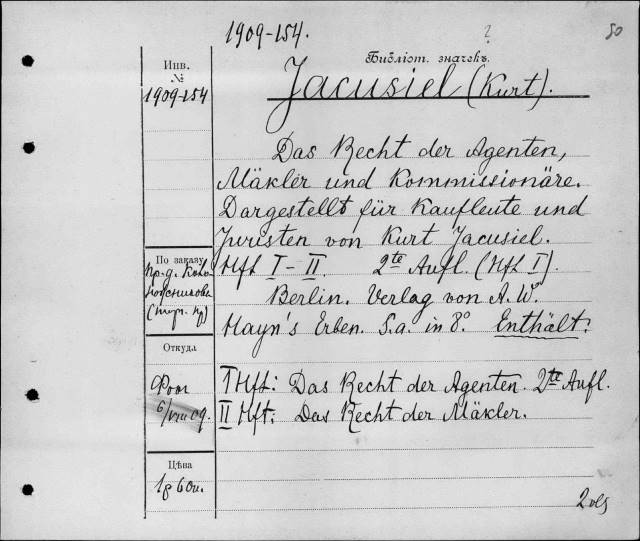 1909-154.
?
50
Инв.
№
1909-154
Библіот. значекъ.
Jacusiel (Kurt).
Das Recht der Agenten,
Mäkler und Kommissionäre.
Dargestellt für Kaufleute und
Juristen von Kurt Jacusiel.
По заказу
Hft I–II. 2te Aufl. (Hft I).
Berlin. Verlag von A. W.
Hayn's Erben. S.a. in 8°. Enthält:
Откуда
I Hft: Das Recht der Agenten. 2te Aufl.
6/VIII 09.
II Hft: Das Recht der Mäkler.
Цѣна
1р 60к.
2